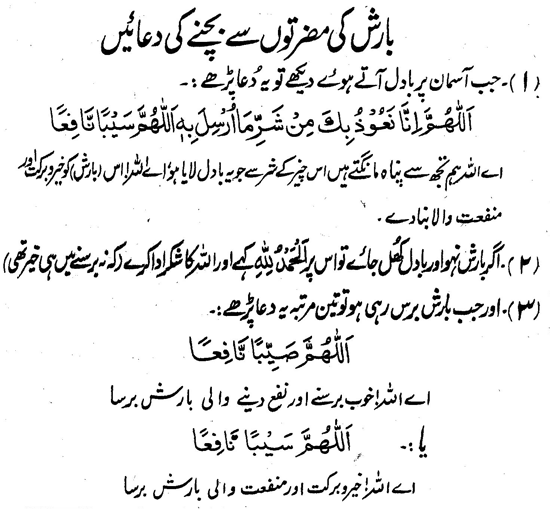 بارش کی مضرتوں سے بچنے کی دعائیں
(۱)۔ جب آسمان پر بادل آتے ہوے دیکھے تو یہ دُعا پڑھے :۔
اَللّٰهُمَّ اِنَّا نَعُوْذُ بِكَ مِنْ شَرِّمَا اُرْسِلَ بِهٖ اَللّٰهُمَّ سَيْبًا نَّافِعًا
اے اللہ ہم تجھ سے پناہ مانگتے ہیں اس چیز کے شر سے جو یہ بادل لایا ہو اے اللہ! اس (بارش) کو خیر و برکت اور
منفعت والا بنادے ۔
(۲)۔ اگر بارش نہو اور بادل کھُل جائے تو اس پر اَلْحَمْدُ لِلّٰهِ کہے اور اللہ کا شکر ادا کرے (کہ نہ برسنے میں ہی خیر تھی)
(۳)۔ اور جب بارش برس رہی ہو تو تین مرتبہ یہ دعا پڑھے :۔
اَللّٰهُمَّ صَيِّبًا نَّافِعًا
اے اللہ! خوب برسنے اور نفع دینے والی بارش برسا
یا :۔ اَللّٰهُمَّ سَيْبًا نَّافِعًا
اے اللہ! خیر و برکت اور منفعت والی بارش برسا